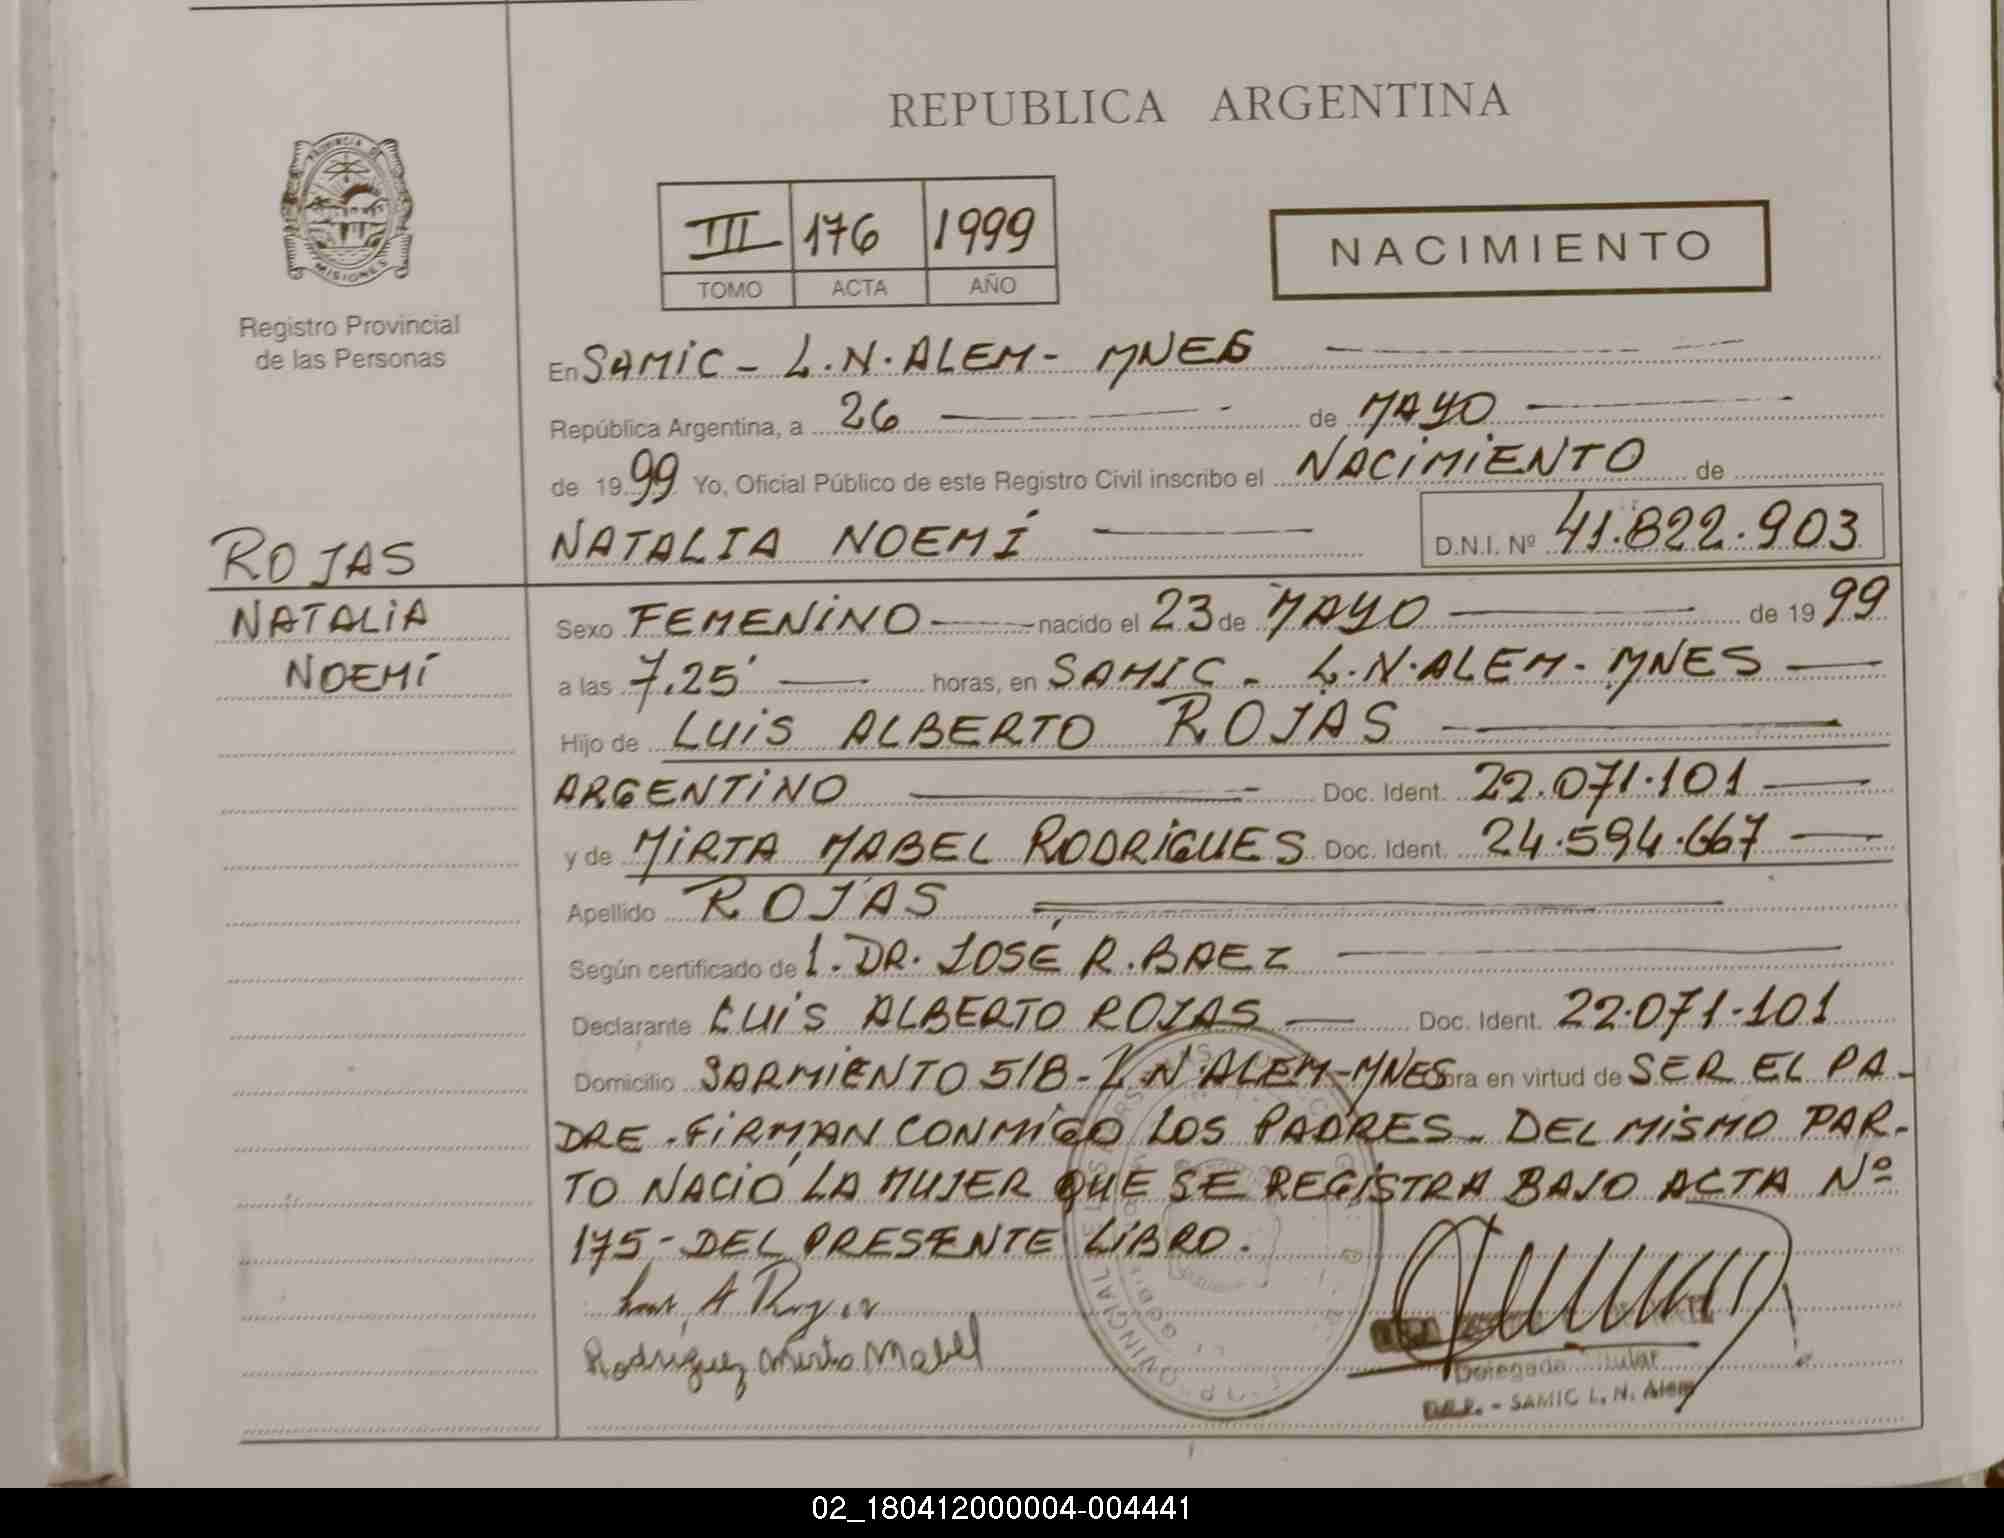 REPUBLICA ARGENTINA
PROVINCIA DE
MISIONES
Registro Provincial
de las Personas
III 176 1999
TOMO ACTA AÑO
NACIMIENTO
En SAMIC - L.N. ALEM - MNES
República Argentina, a 26 de MAYO
de 1999 Yo, Oficial Público de este Registro Civil inscribo el NACIMIENTO de
NATALIA NOEMÍ D.N.I. Nº 41.822.903
ROJAS
NATALIA
NOEMÍ
Sexo FEMENINO nacido el 23 de MAYO de 1999
a las 7.25' horas, en SAMIC - L.N. ALEM - MNES
Hijo de LUIS ALBERTO ROJAS
ARGENTINO Doc. Ident. 22.071.101
y de MIRTA MABEL RODRIGUES Doc. Ident. 24.594.667
Apellido ROJAS
Según certificado de 1. DR. JOSÉ R. BAEZ
Declarante LUIS ALBERTO ROJAS Doc. Ident. 22.071.101
Domicilio SARMIENTO 518 - L.N. ALEM - MNES obra en virtud de SER EL PA-
DRE. FIRMAN CONMIGO LOS PADRES. DEL MISMO PAR-
TO NACIÓ LA MUJER QUE SE REGISTRA BAJO ACTA Nº
175 - DEL PRESENTE LIBRO.
Rodriguez Mirta Mabel
Delegada Titular
- SAMIC L. N. Alem
02_180412000004-004441